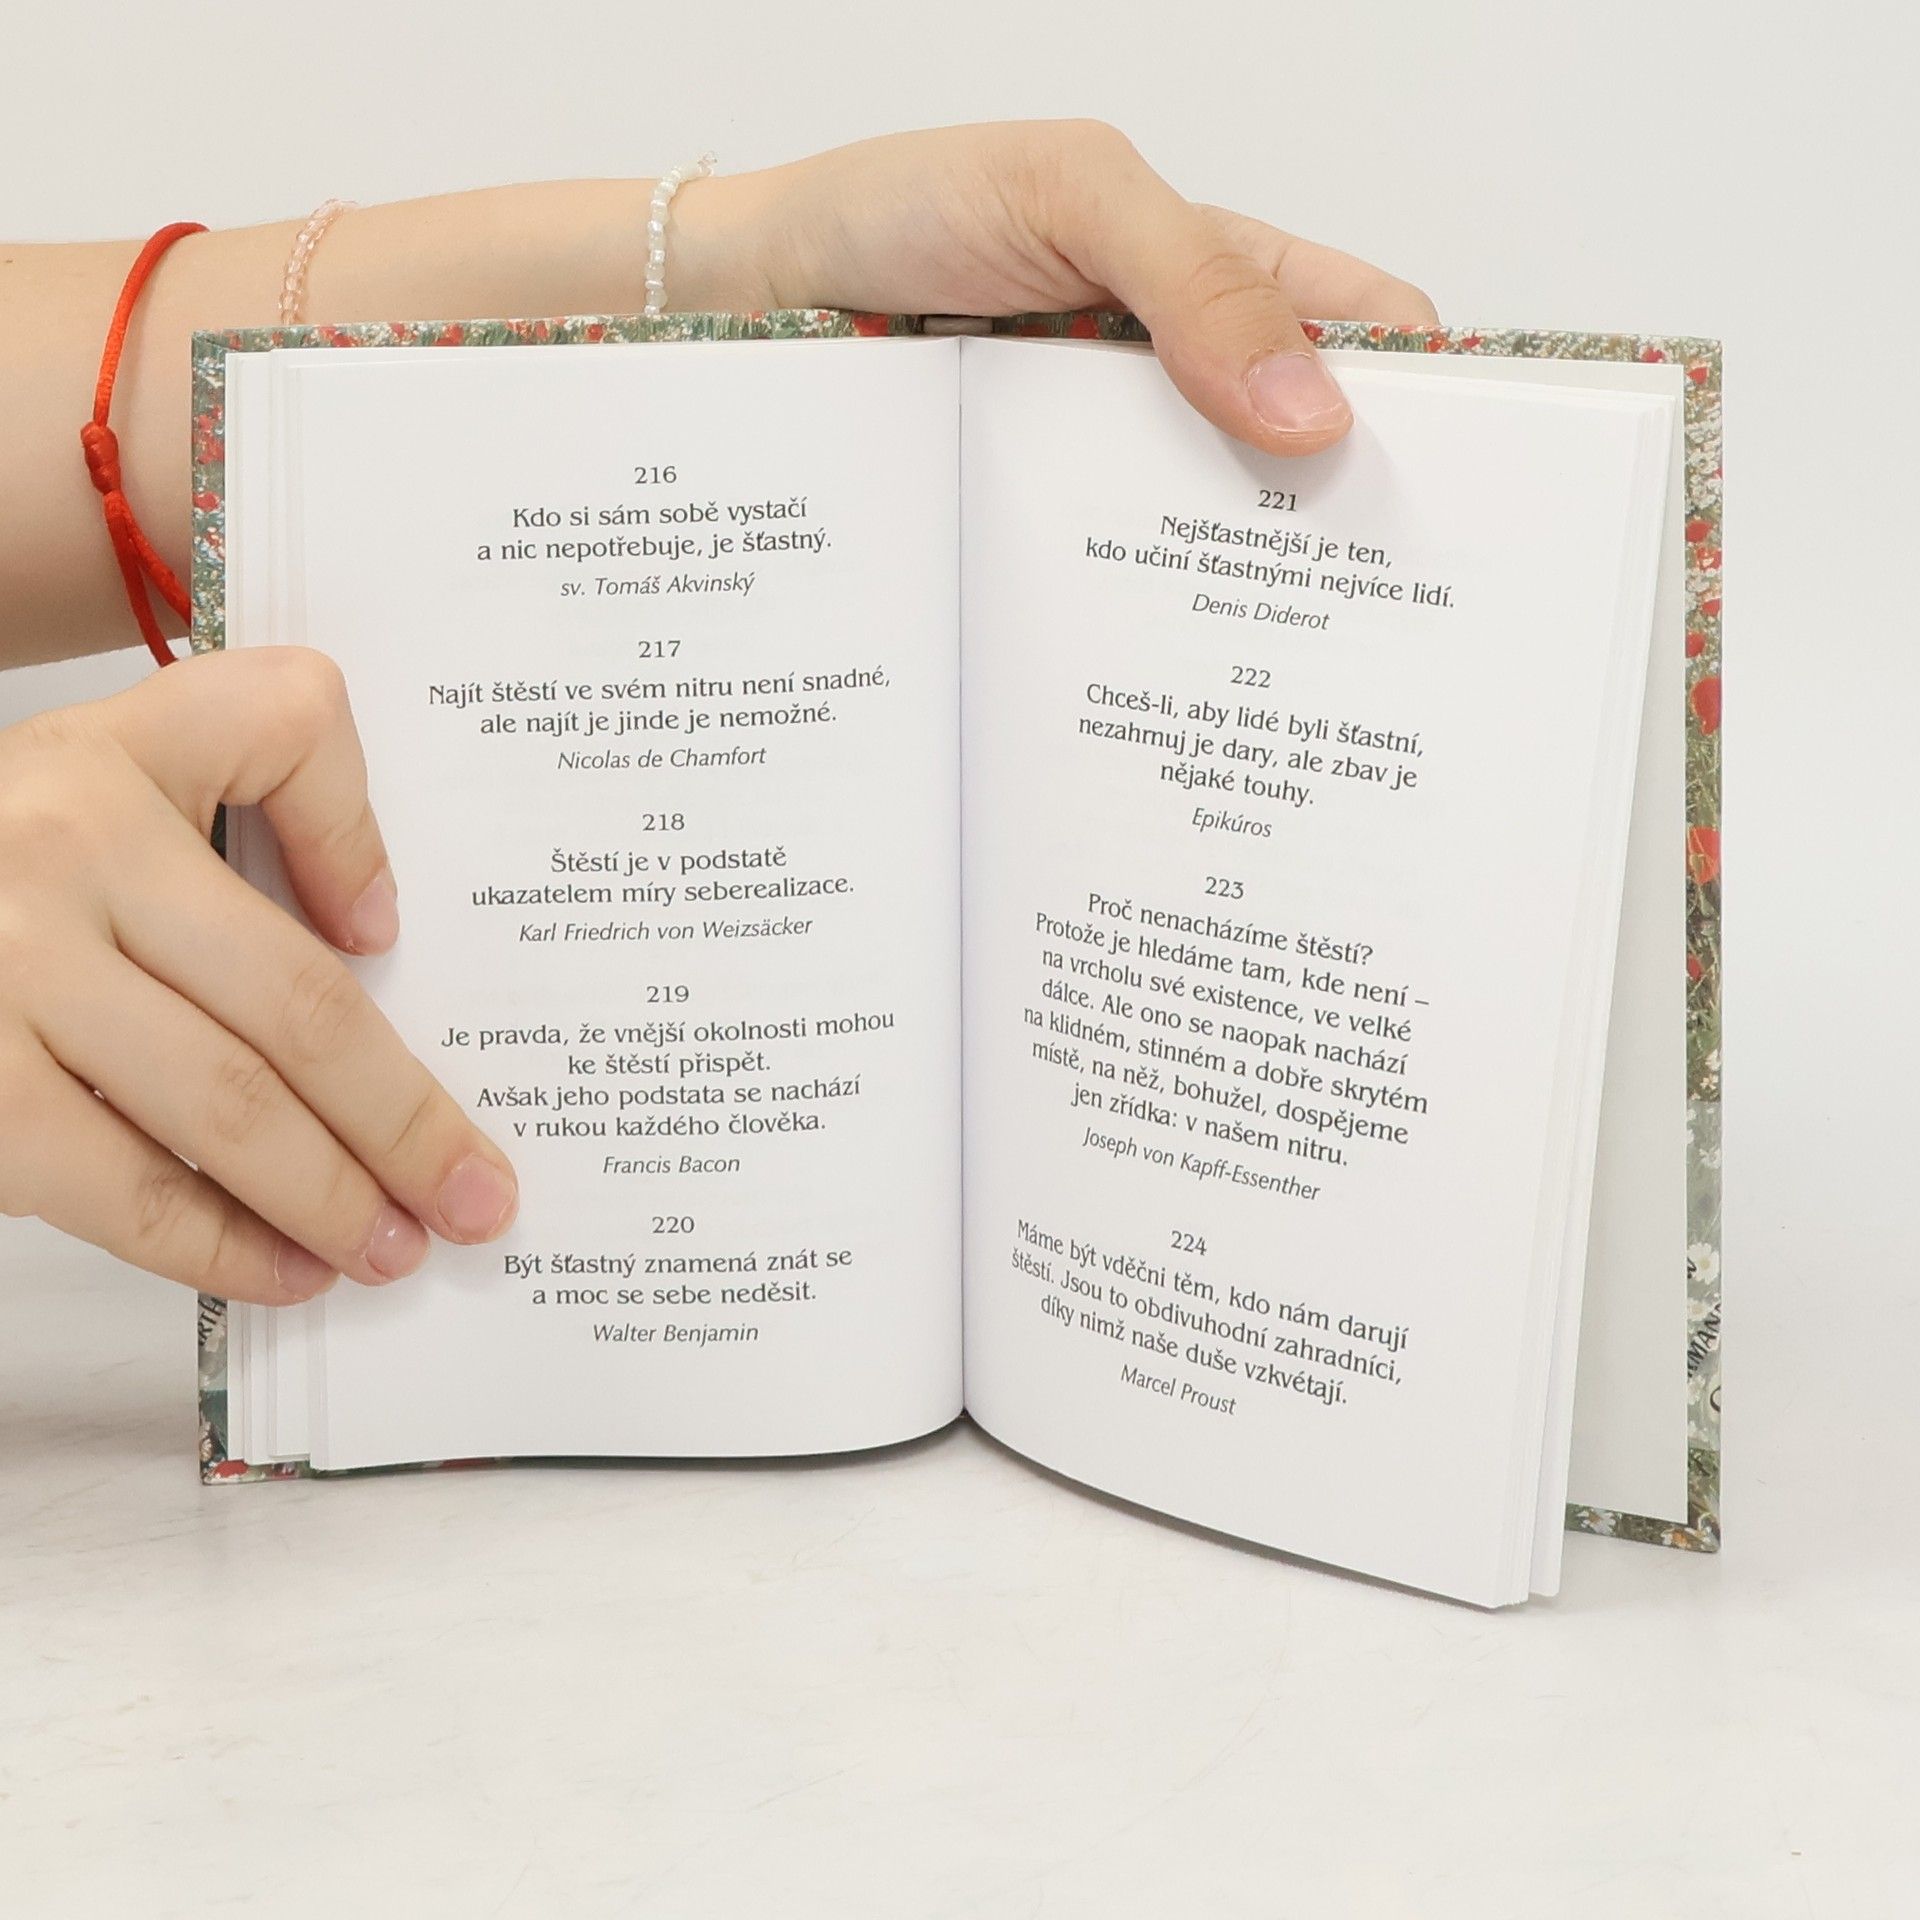 216
Kdo si sám sobě vystačí
a nic nepotřebuje, je šťastný.
sv. Tomáš Akvinský
217
Najít štěstí ve svém nitru není snadné,
ale najít je jinde je nemožné.
Nicolas de Chamfort
218
Štěstí je v podstatě
ukazatelem míry seberealizace.
Karl Friedrich von Weizsäcker
219
Je pravda, že vnější okolnosti mohou
ke štěstí přispět.
Avšak jeho podstata se nachází
v rukou každého člověka.
Francis Bacon
220
Být šťastný znamená znát se
a moc se sebe neděsit.
Walter Benjamin
221
Nejšťastnější je ten,
kdo učiní šťastnými nejvíce lidí.
Denis Diderot
222
Chceš-li, aby lidé byli šťastní,
nezahrnuj je dary, ale zbav je
nějaké touhy.
Epikúros
223
Proč nenacházíme štěstí?
Protože je hledáme tam, kde není –
na vrcholu své existence, ve velké
dálce. Ale ono se naopak nachází
na klidném, stinném a dobře skrytém
místě, na něž, bohužel, dospějeme
jen zřídka: v našem nitru.
Joseph von Kapff-Essenther
224
Máme být vděčni těm, kdo nám darují
štěstí. Jsou to obdivuhodní zahradníci,
díky nimž naše duše vzkvétají.
Marcel Proust